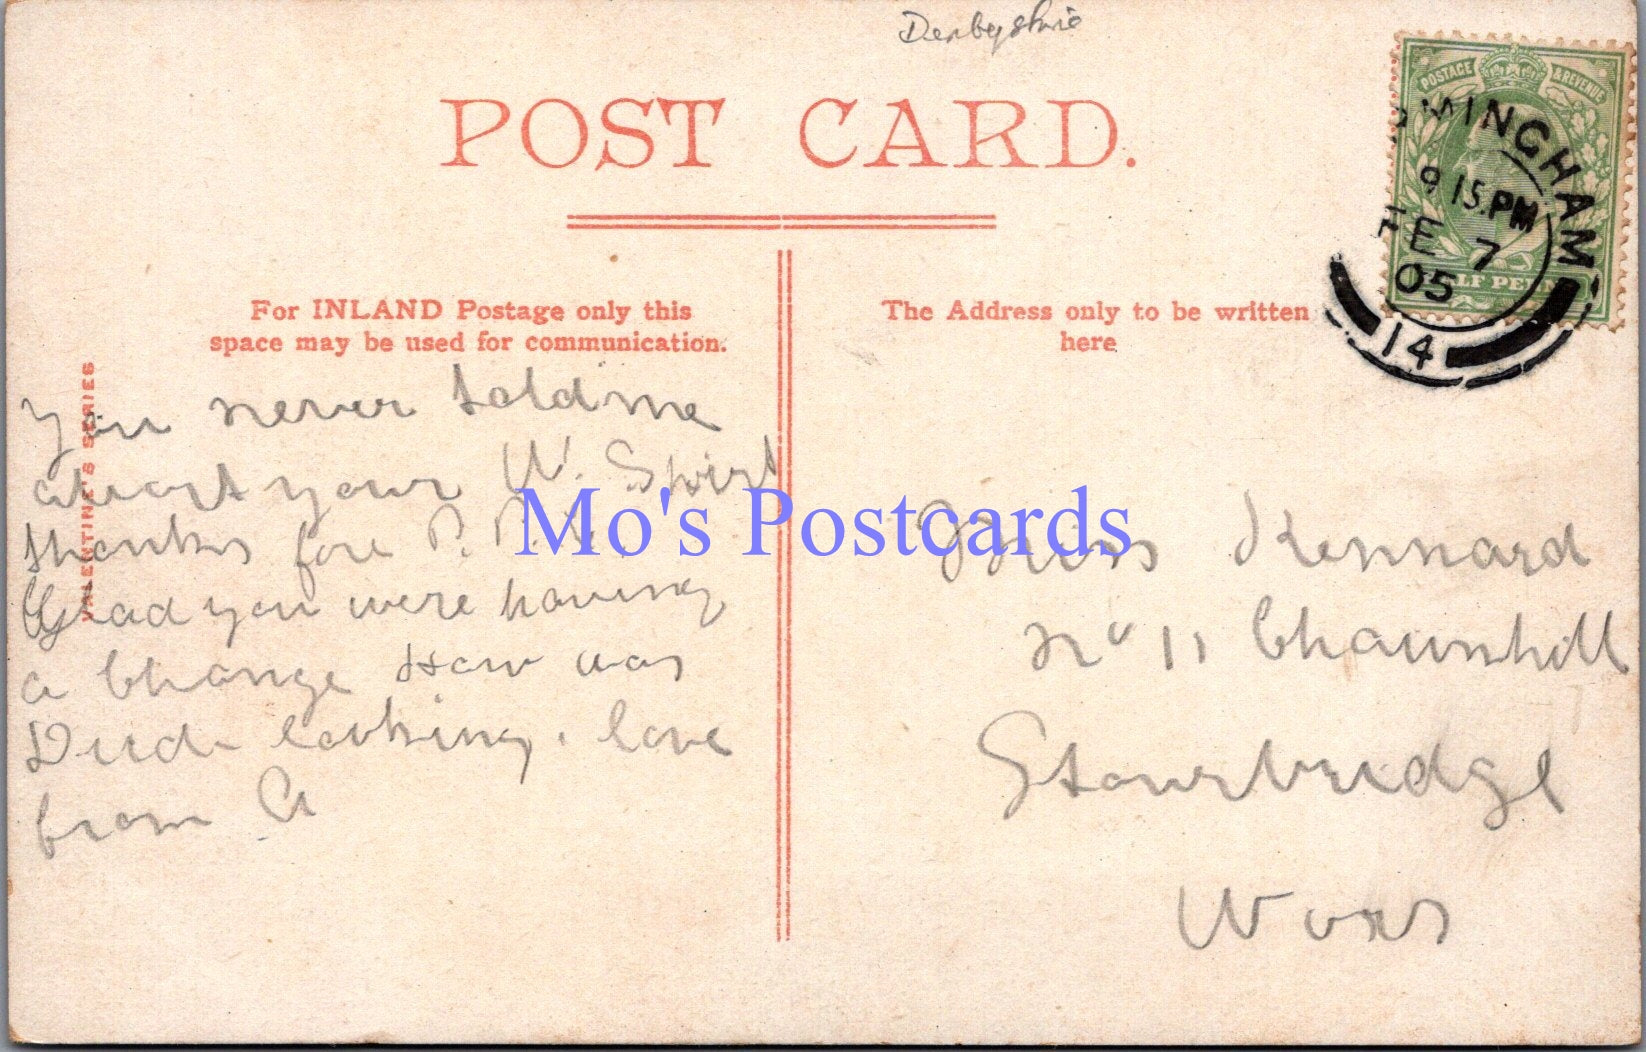 Derbyshire
POST CARD.
POSTAGE & REVENUE
MINGHAM
9 15.PM
FE 7
05
14
For INLAND Postage only this
space may be used for communication.
The Address only to be written
here
VALENTINE'S SERIES
You never told me
about your W. Spirt
thanks fore P. P.
Glad you were having
a Change How was
looking. love
from A
Mo's Postcards
Miss Kennard
No 11 Chawnhill
Stourbridge
Wors